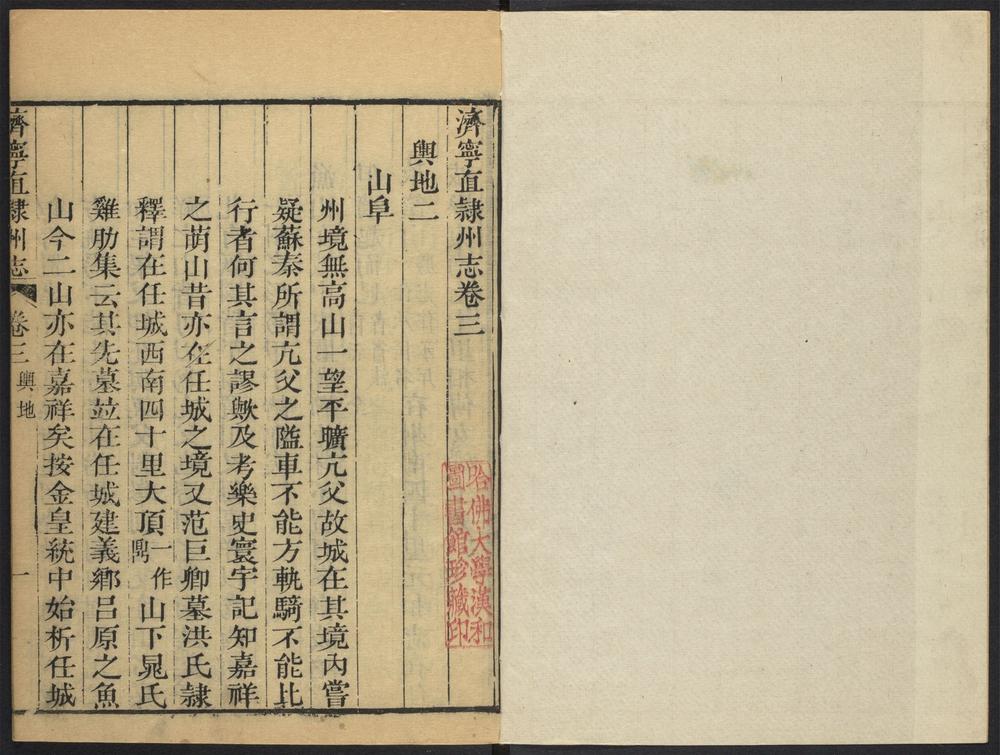 濟寧直隸州志卷三
輿地二
山阜
州境無高山一望平曠亢父故城在其境內嘗
疑蘇秦所謂亢父之隘車不能方軌騎不能比
行者何其言之謬歟及考樂史寰宇記知嘉祥
之萌山昔亦在任城之境又范巨卿墓洪氏隸
釋謂在任城西南四十里大頂一作鹘山下晁氏
雞肋集云其先墓竝在任城建義鄉呂原之魚
山今二山亦在嘉祥矣按金皇統中始析任城
濟寧直隸州志 卷三 輿地 一
哈佛大學漢和
圖書館珍藏印